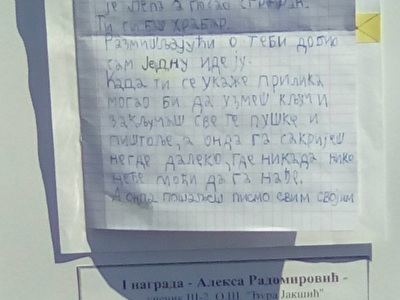 је лепа а глава
Ти си баш храбар.
Размишљајући о теби добио
сам једну идеју.
Када ти се укаже прилика
могао би да узмеш кључ и
закључаш све те пушке и
пиштоље, а онда га сакријеш
негде далеко, где никада нико
неће моћи да га нађе.
А онда пошаљеш писмо свим својим
I награда - Алекса Радомировић -
ученик III-2, О.Ш. "Ђура Јакшић"